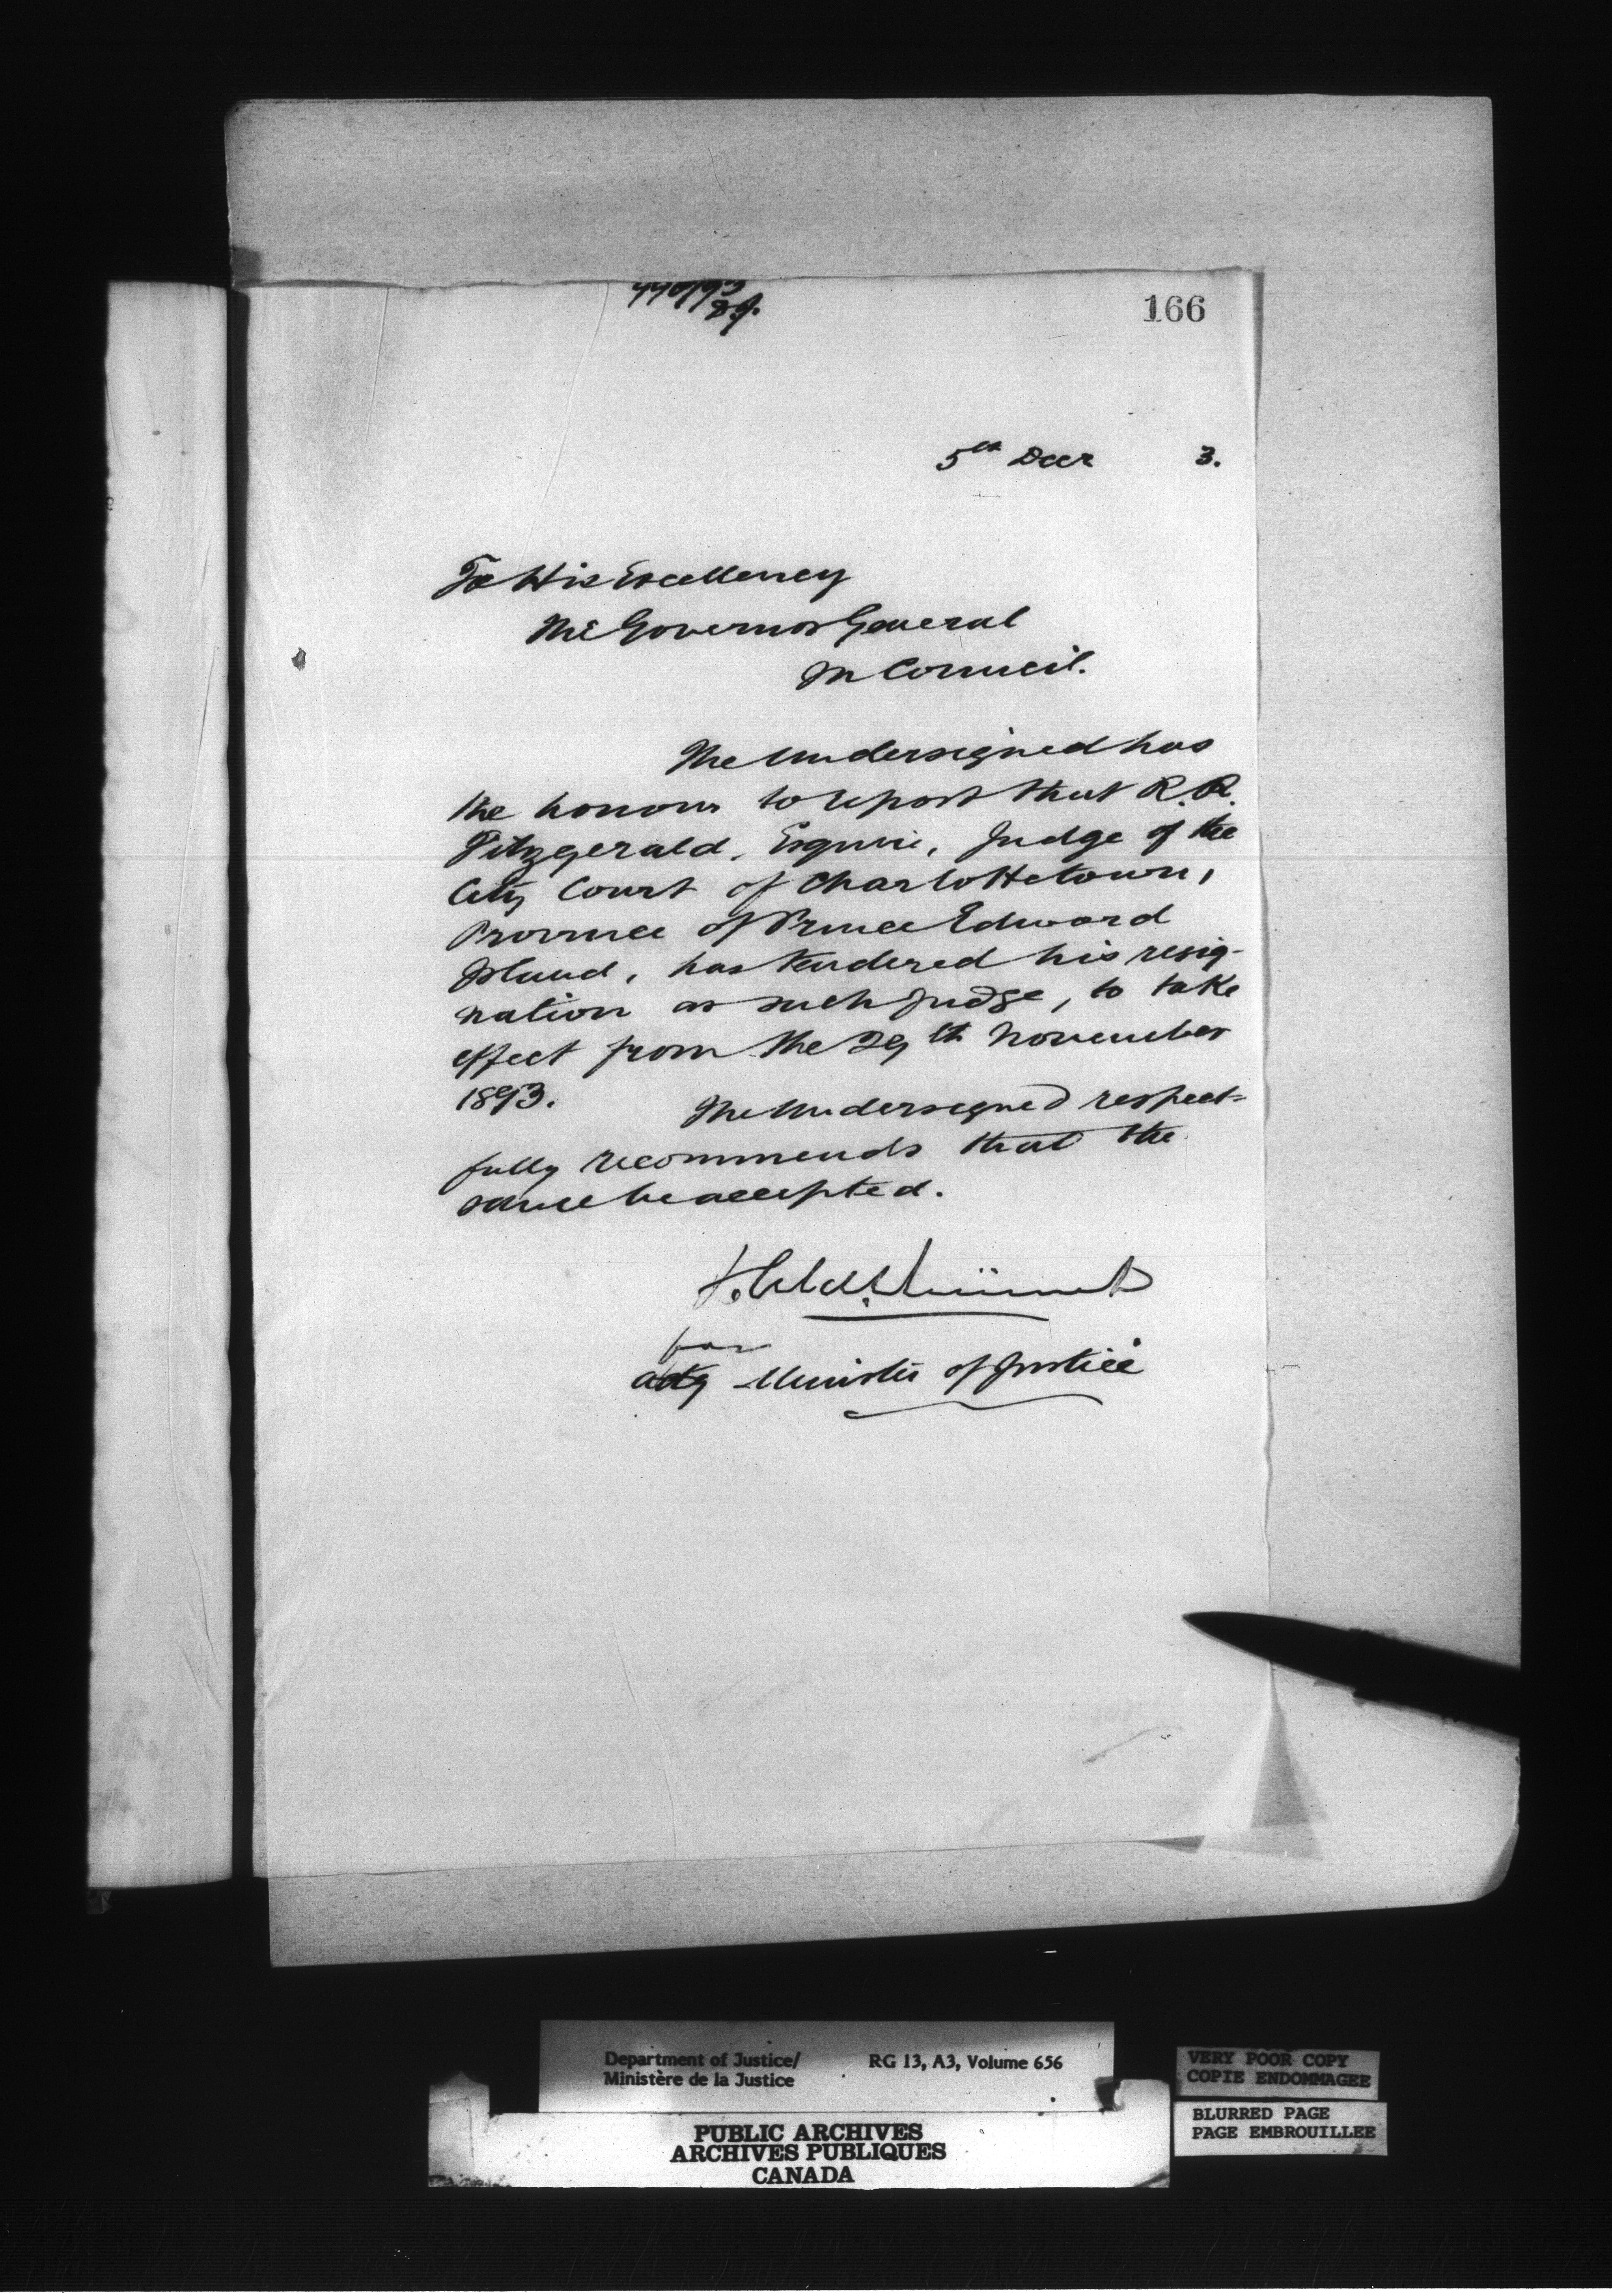 166
5th Decr 3.
To His Excellency
The Governor General
In Council.
The Undersigned has
the honour to report that R. R.
Fitzgerald, Esquire, Judge of the
City Court of Charlottetown,
Province of Prince Edward
Island, has tendered his resig-
nation as such Judge, to take
effect from the 29th November
1893.
The Undersigned respect-
fully recommends that the
same be accepted.
for
actg Minister of Justice
Department of Justice/ RG 13, A3, Volume 656
Ministère de la Justice
VERY POOR COPY
COPIE ENDOMMAGEE
BLURRED PAGE
PAGE EMBROUILLEE
PUBLIC ARCHIVES
ARCHIVES PUBLIQUES
CANADA